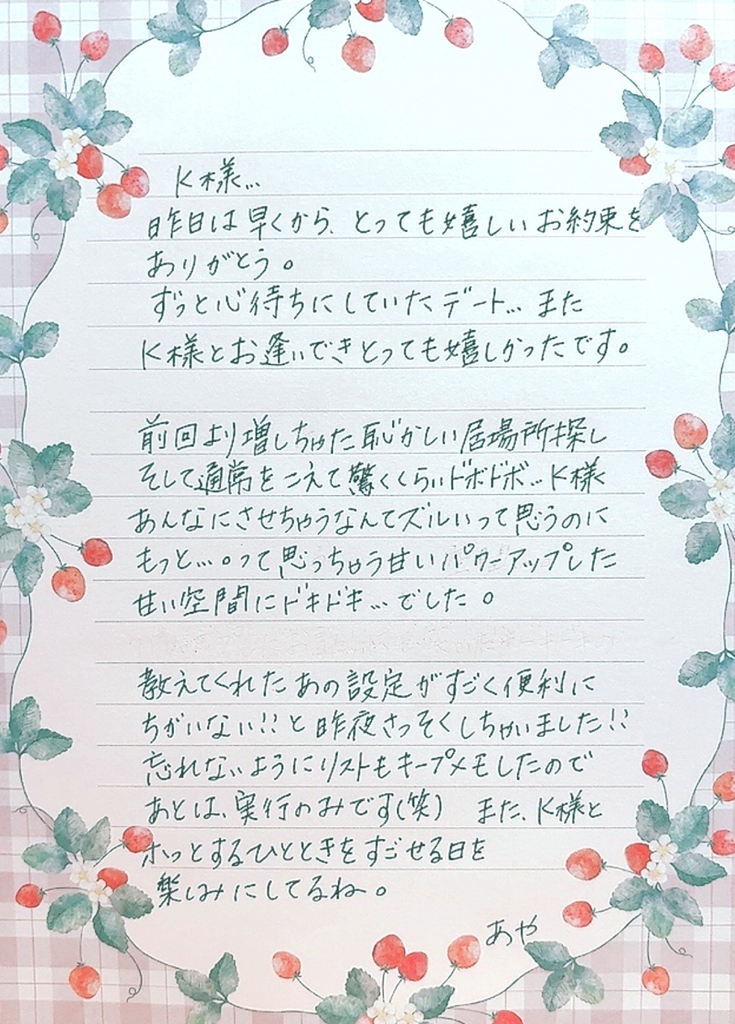 K様…
昨日は早くから、とっても嬉しいお約束を
ありがとう。
ずっと心待ちにしていたデート… また
K様とお逢いできとっても嬉しかったです。
前回より増しちゃた恥かしい居場所探し
そして通常をこえて驚くくらいドボドボ…K様
あんなにさせちゃうなんてズルいって思うのに
もっと…。って思っちゃう甘いパワーアップした
甘い空間にドキドキ…でした。
教えてくれたあの設定がすごく便利に
ちがいない!!と昨夜さっそくしちゃいました!!
忘れないようにリストもキープメモしたので
あとは、実行のみです(笑) また、K様と
ホッとするひとときをすごせる日を
楽しみにしてるね。
あや